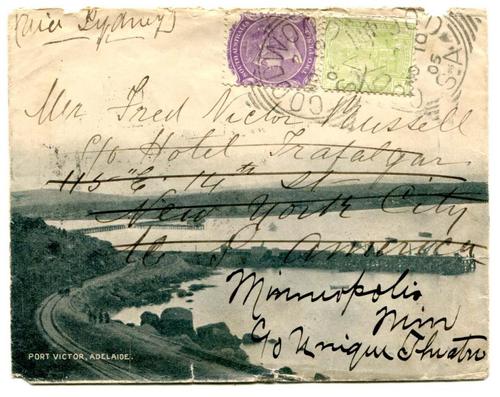 (via Sydney)
Mr Fred Victor Bussell
c/o Hotel Trafalgar
115 E 14th St
New York City
U S America
Minneopolis
Minn
c/o Unique Theatre
PORT VICTOR, ADELAIDE.